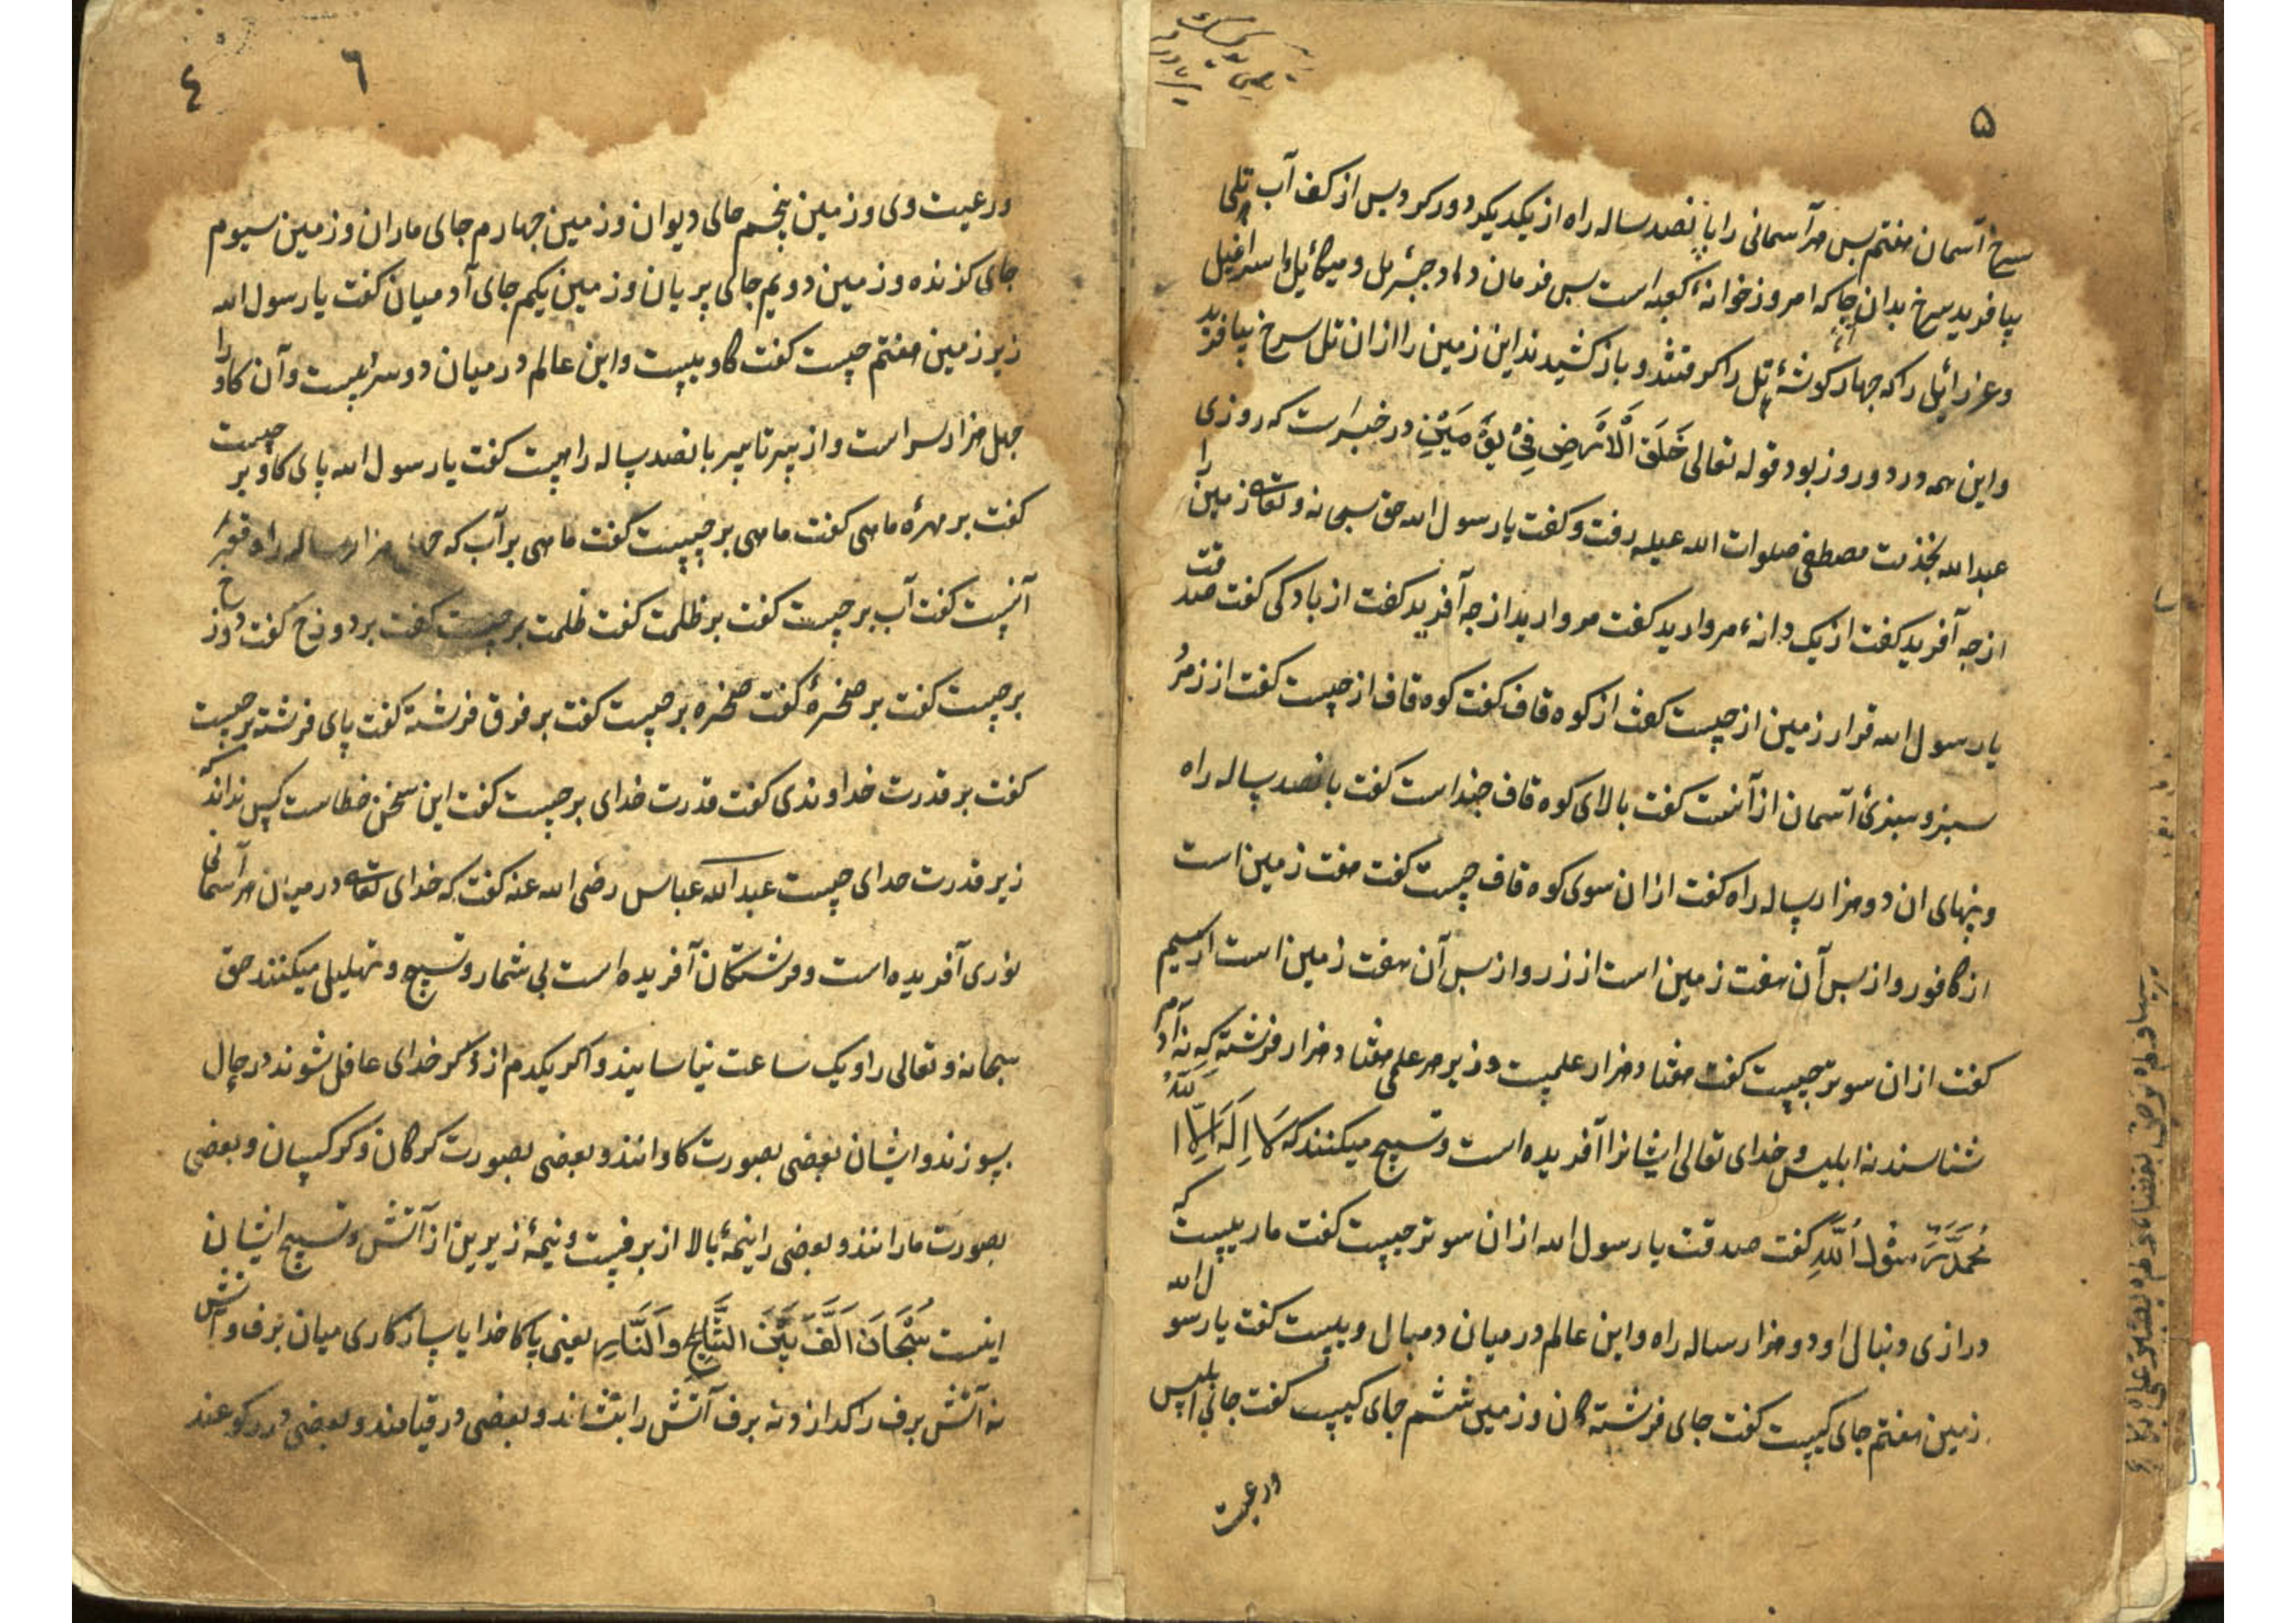 ۵
سرخ آسمان هفتم پس هر آسمانی را پانصد ساله راه از یکدیکر دور کرد پس از کف آب تلی
بیافرید سرخ بدان جا که امروز خوانهٔ کعبه است پس فرمان داد جبرئیل و میکائیل و اسرافیل
و عزرائیل را که چهار کوشهٔ تل را کرفتند و باز کشیدند این زمین را از ان تل سرخ بیافرید
و این همه در دو روز بود قوله تعالی خَلَقَ الْاَرْضَ فِیْ یَوْمَیْنِ در خبراست که روزی
عبدالله بخذمت مصطفی صلوات الله علیه رفت و کفت یا رسول الله حق سبحانه و تعالی زمین را
از چه آفرید کفت از یک دانهٔ مروارید کفت مروارید از چه آفرید کفت از باد کی کفت صدقت
یا رسول الله قرار زمین از چیست کفت از کوه قاف کفت کوه قاف از چیست کفت از زمرد
سبز و سبزیٔ آسمان از آنست کفت بالای کوه قاف چند است کفت پانصد ساله راه
و پنهای ان دو هزار ساله راه کفت از ان سوی کوه قاف چیست کفت هفت زمین است
از کافور و از پس آن هفت زمین است از زر و از پس آن هفت زمین است از سیم
کفت از ان سو تر چیست کفت هفتاد هزار علمیست و زیر هر علمی هفتاد هزار فرشته که نه آدم
شناسند نه ابلیس و خدای تعالی ایشانرا آفریده است و تسبیح میکنند که لَا اِلٰهَ اِلَّا اللّٰهُ
مُحَمَّدٌ رَّسُوْلُ اللّٰهِ کفت صدقت یا رسول الله از ان سو تر چیست کفت ماریست که
درازی و نبالی او دو هزار ساله راه و این عالم در میان دمبال ویست کفت یا رسول الله
زمین هفتم جای کیست کفت جای فرشته کان و زمین ششم جای کیست کفت جای ابلیس
ورعیت
٦
٤
ورعیت وی و زمین پنجم جای دیوان و زمین چهارم جای ماران و زمین سیوم
جای کزنده و زمین دویم جای پریان و زمین یکم جای آدمیان کفت یا رسول الله
زیر زمین هفتم چیست کفت کاویست و این عالم در میان دو سر ویست و آن کاو را
چهل هزار سر است و از سر تا سر پانصد ساله راهست کفت یا رسول الله پای کاو بر چیست
کفت بر مهرهٔ ماهی کفت ماهی بر چیست کفت ماهی بر آب که چهل هزار ساله راه قعر
آنست کفت آب بر چیست کفت بر ظلمت کفت ظلمت بر چیست کفت بر دوزخ کفت دوزخ
بر چیست کفت بر صخرهٔ کفت صخره بر چیست کفت بر فوق فرشته کفت پای فرشته بر چیست
کفت بر قدرت خداوندی کفت قدرت خدای بر چیست کفت این سخن خطاست کس نداند که
زیر قدرت خدای چیست عبدالله عباس رضی الله عنه کفت که خدای تعالی در میان هر آسمانها
نوری آفریده است و فرشتکان آفریده است بی شمار و تسبیح و تهلیل میکنند حق
سبحانه و تعالی را و یک ساعت نیاسایند و اکر یکدم از ذکر خدای غافل شوند در حال
بسوزند و ایشان بعضی بصورت کاوانند و بعضی بصورت کرکان و کرکسان و بعضی
بصورت مارانند و بعضی را نیمهٔ بالا از برفست و نیمهٔ زیرین از آتش و تسبیح ایشان
اینست سُبْحَانَ اَلَّفَ بَیْنَ الثَّلْجِ وَالنَّارِ یعنی پاکا خدایا سازکاری میان برف و آتش
نه آتش برف را کدازد نه برف آتش را بنشاند و بعضی در قیامند و بعضی در رکوعند